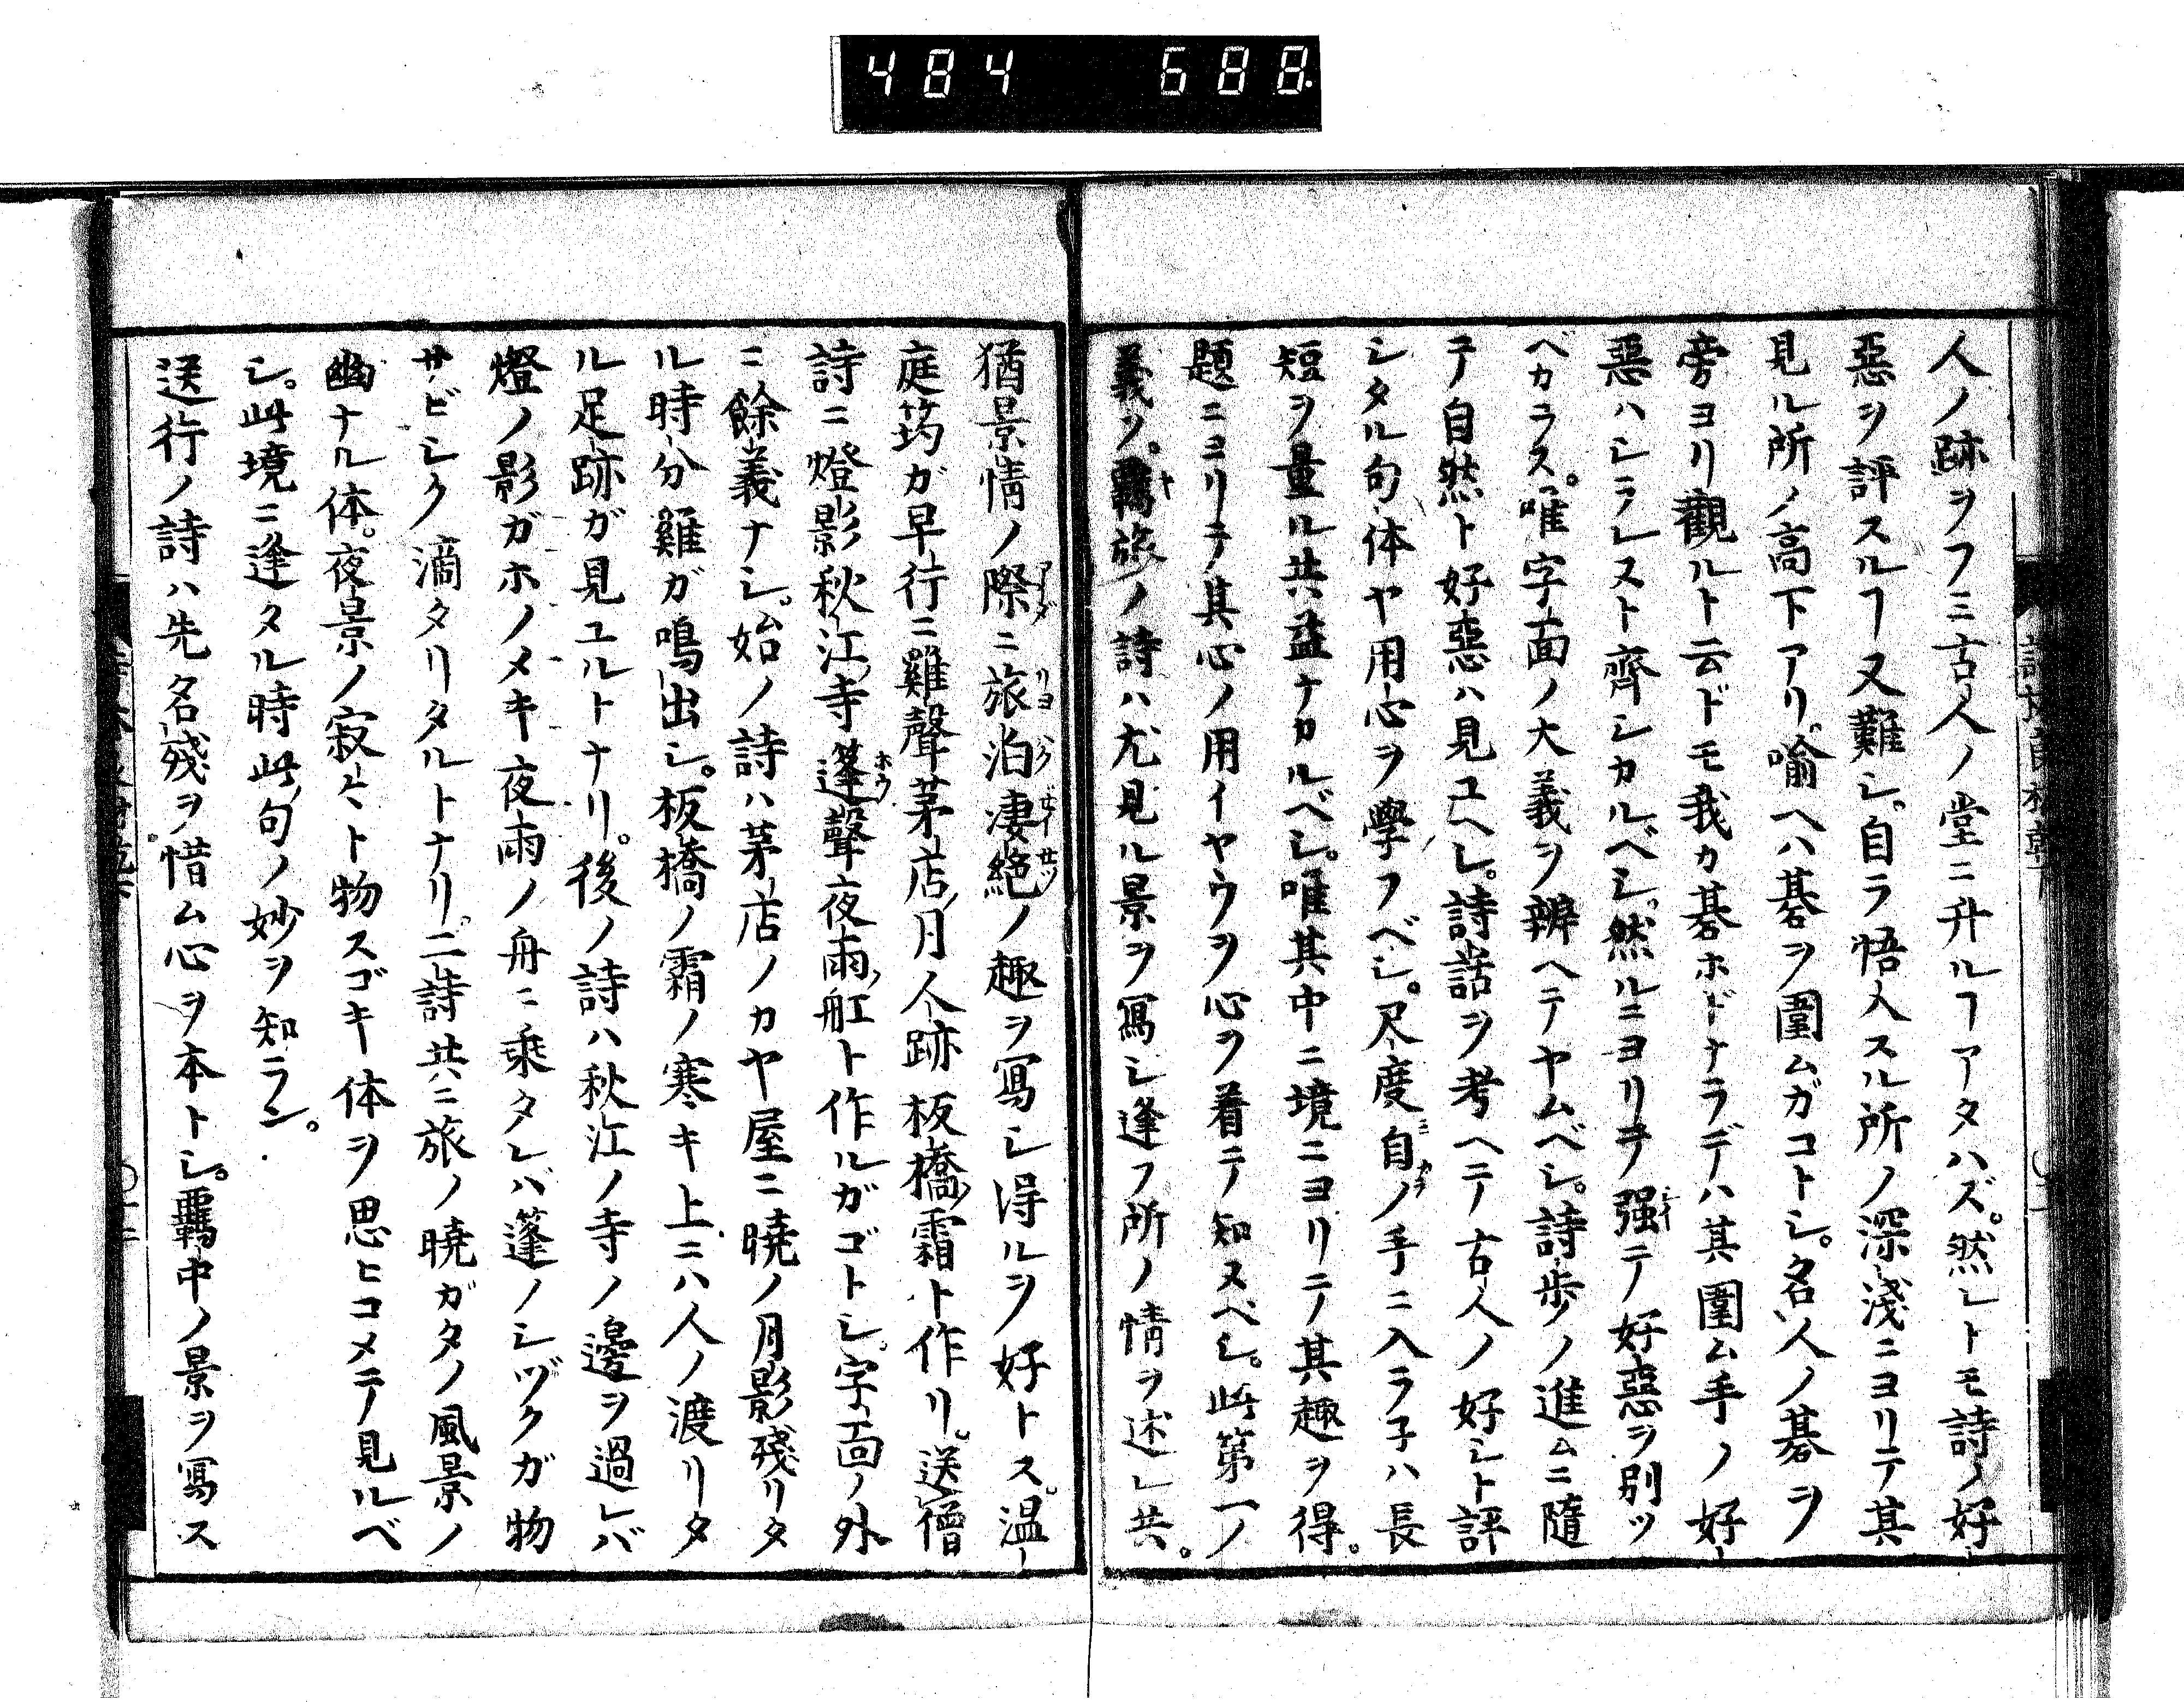 484 688
人ノ跡ヲフミ古人ノ堂ニ升ルヿアタハズ。然レトモ詩ノ好
惡ヲ評スルヿ又難シ。自ラ悟入スル所ノ深淺ニヨリテ其
見ル所ノ高下アリ。喩ヘハ碁ヲ圍ムガコトシ。名人ノ碁ヲ
旁ヨリ觀ルト云ドモ我カ碁ホドナラデハ其圍ム手ノ好
惡ハシラレスト齊シカルベシ。然ルニヨリテ强テ好惡ヲ別ツ
ベカラス。唯字面ノ大義ヲ辨ヘテヤムベシ。詩歩ノ進ムニ隨
テ自然ト好惡ハ見ユヘシ。詩話ヲ考ヘテ古人ノ好シト評
シタル句体ヤ用心ヲ學フベシ。尺度自ノ手ニ入ラ子ハ長
短ヲ量ル共益ナカルベシ。唯其中ニ境ニヨリテノ其趣ヲ得。
題ニヨリテ其心ノ用イヤウヲ心ヲ着テ知スベシ。此第一ノ
義ソ。羈旅ノ詩ハ尤見ル景ヲ寫シ逢フ所ノ情ヲ述レ共。
猶景情ノ際ニ旅泊凄絶ノ趣ヲ寫シ得ルヲ好トス。温
庭筠ガ早行ニ雞聲茅店ノ月人跡板橋ノ霜ト作リ。送僧
詩ニ燈影秋江ノ寺蓬聲夜雨ノ舡ト作ルガゴトシ。字面ノ外
ニ餘義ナシ。始ノ詩ハ茅店ノカヤ屋ニ曉ノ月影殘リタ
ル時分雞ガ鳴出シ。板橋ノ霜ノ寒キ上ニハ人ノ渡リタ
ル足跡ガ見ユルトナリ。後ノ詩ハ秋江ノ寺ノ邊ヲ過レバ
燈ノ影ガホノメキ夜雨ノ舟ニ乘タレバ蓬ノシヅクガ物
サビシク滴タリタルトナリ。二詩共ニ旅ノ曉ガタノ風景ノ
幽ナル体。夜景ノ寂〻ト物スゴキ体ヲ思ヒコメテ見ルベ
シ。此境ニ逢タル時此句ノ妙ヲ知ラン。
送行ノ詩ハ先名殘ヲ惜ム心ヲ本トシ。羈中ノ景ヲ寫ス